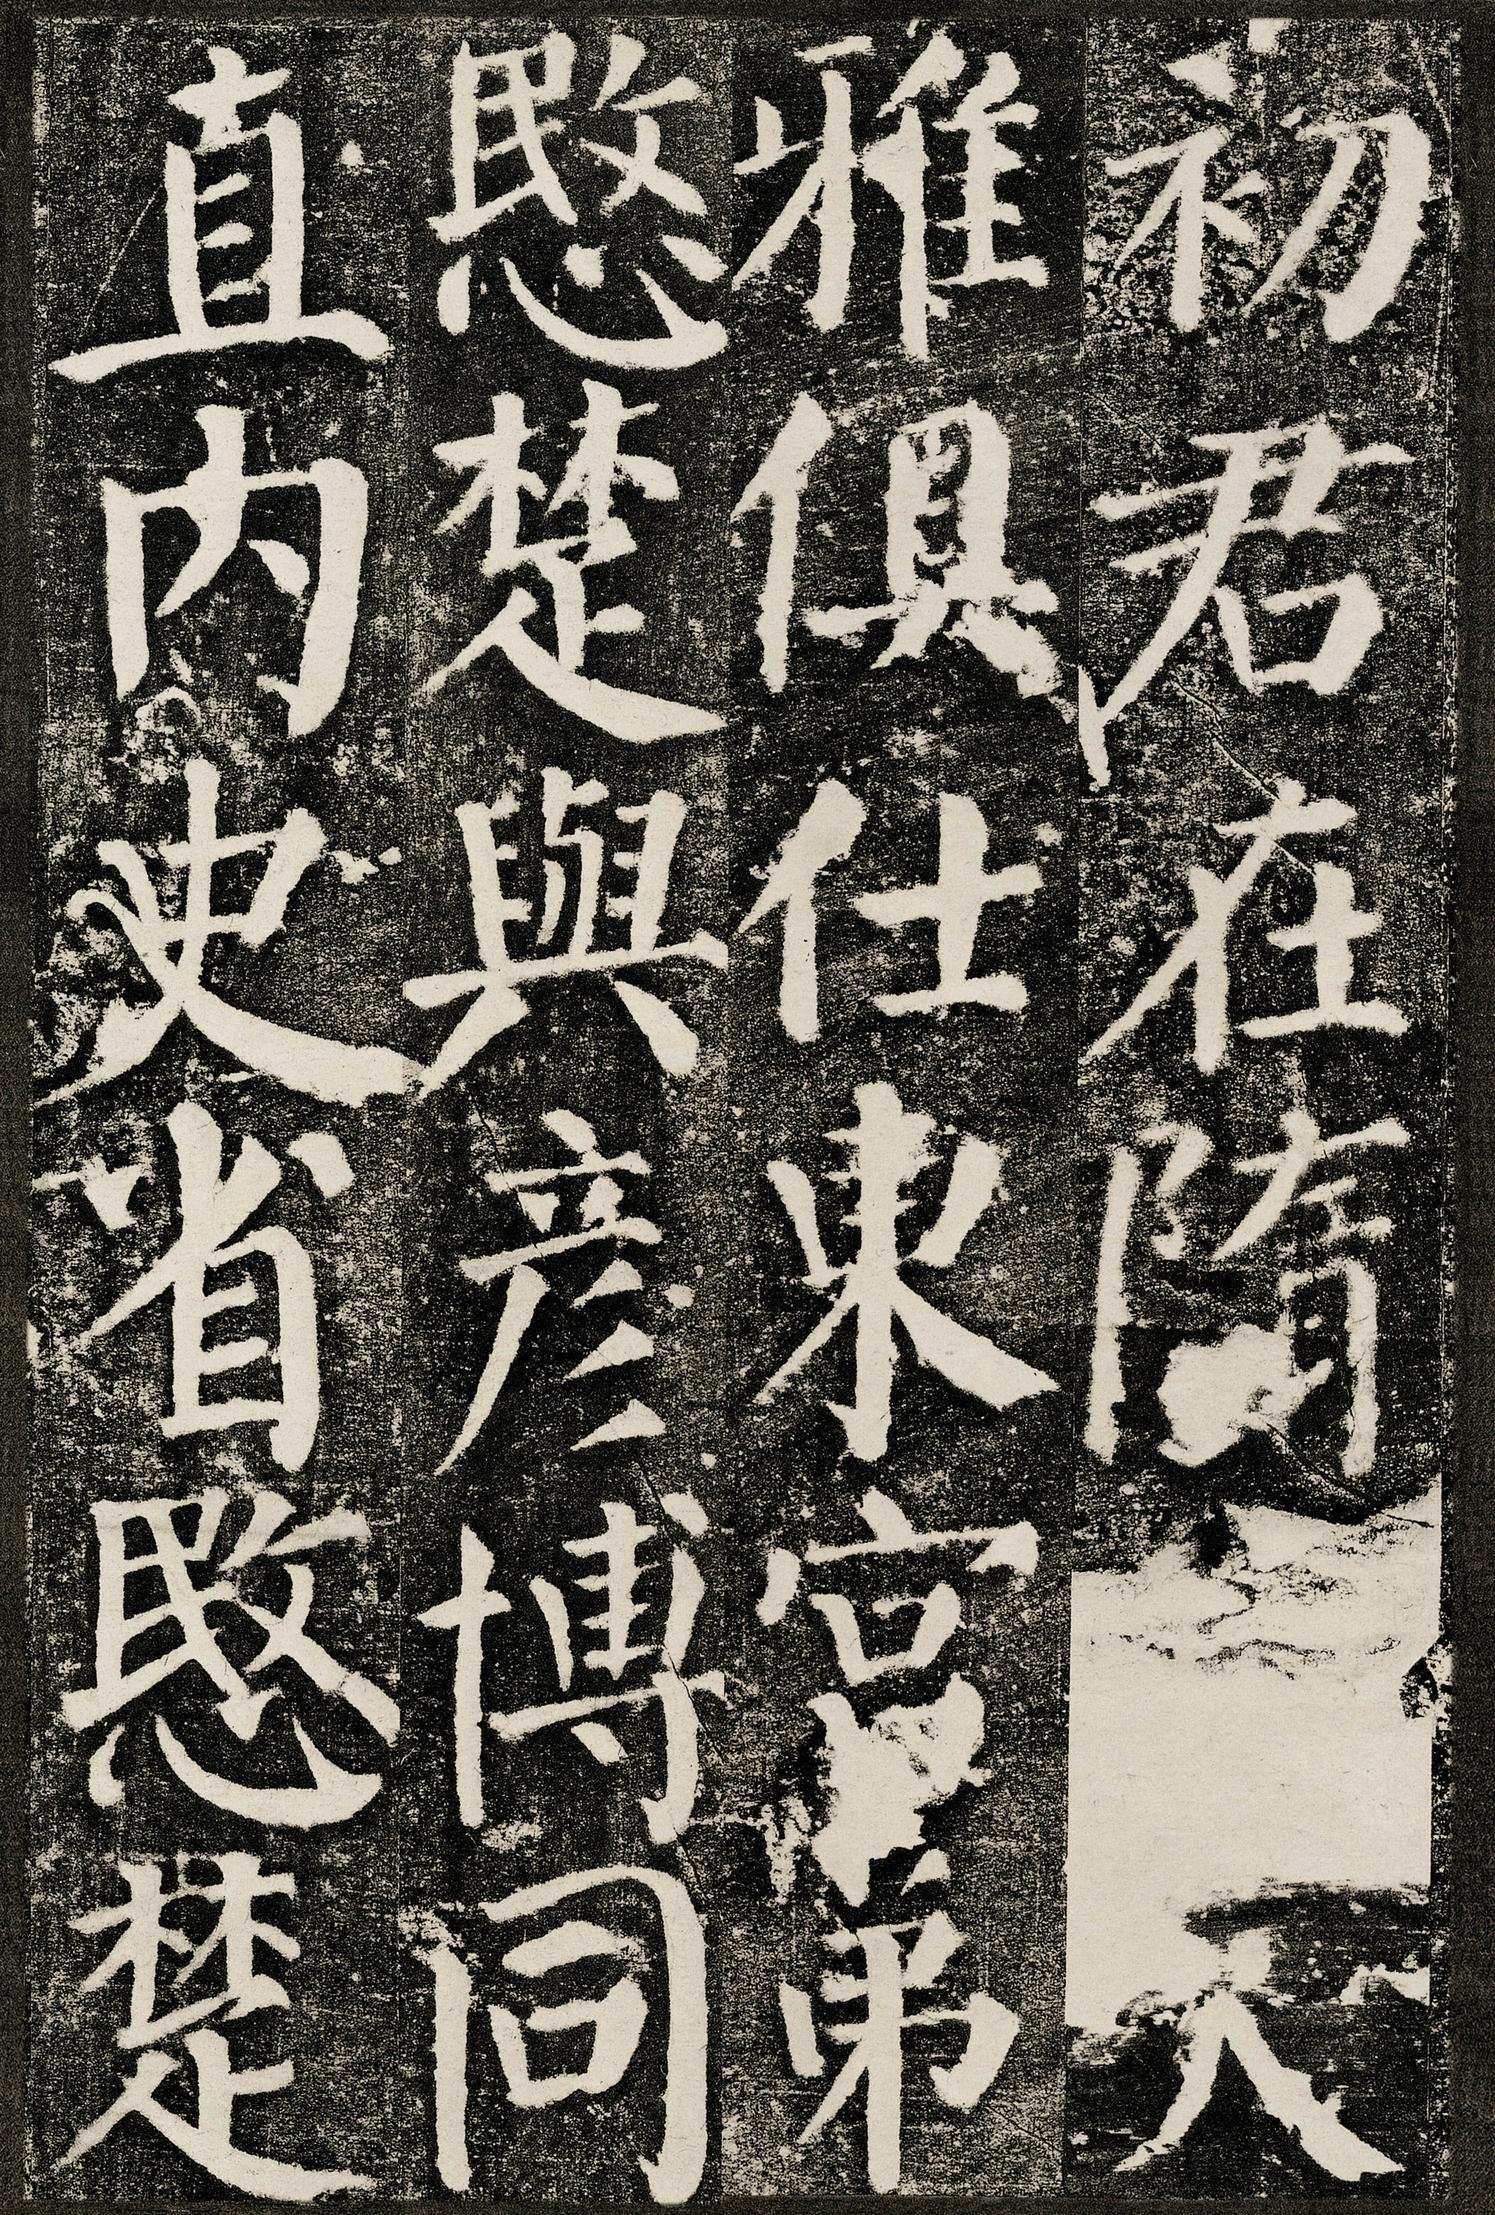 初君在隋大
雅俱仕東宮弟
愍楚與彥博同
直內史省愍楚